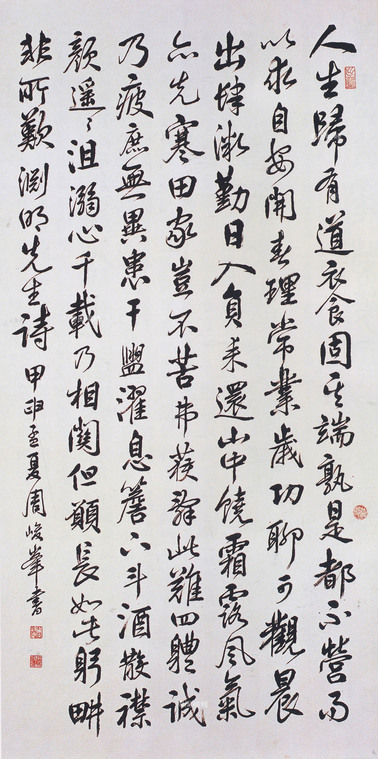 人生歸有道衣食固其端孰是都不營而
以求自安開春理常業歲功聊可觀晨
出肆微勤日入負耒還山中饒霜露風氣
亦先寒田家豈不苦弗獲辭此難四體誠
乃疲庶無異患干盥濯息簷下斗酒散襟
顏遙々沮溺心千載乃相關但願長如此躬畊
非所歎淵明先生詩甲申孟夏周峻峯書